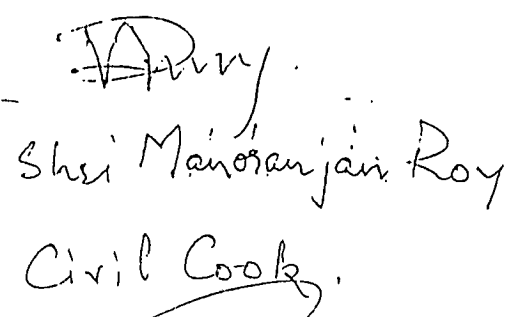 Shri Manoranjan Roy
Civil Cook.